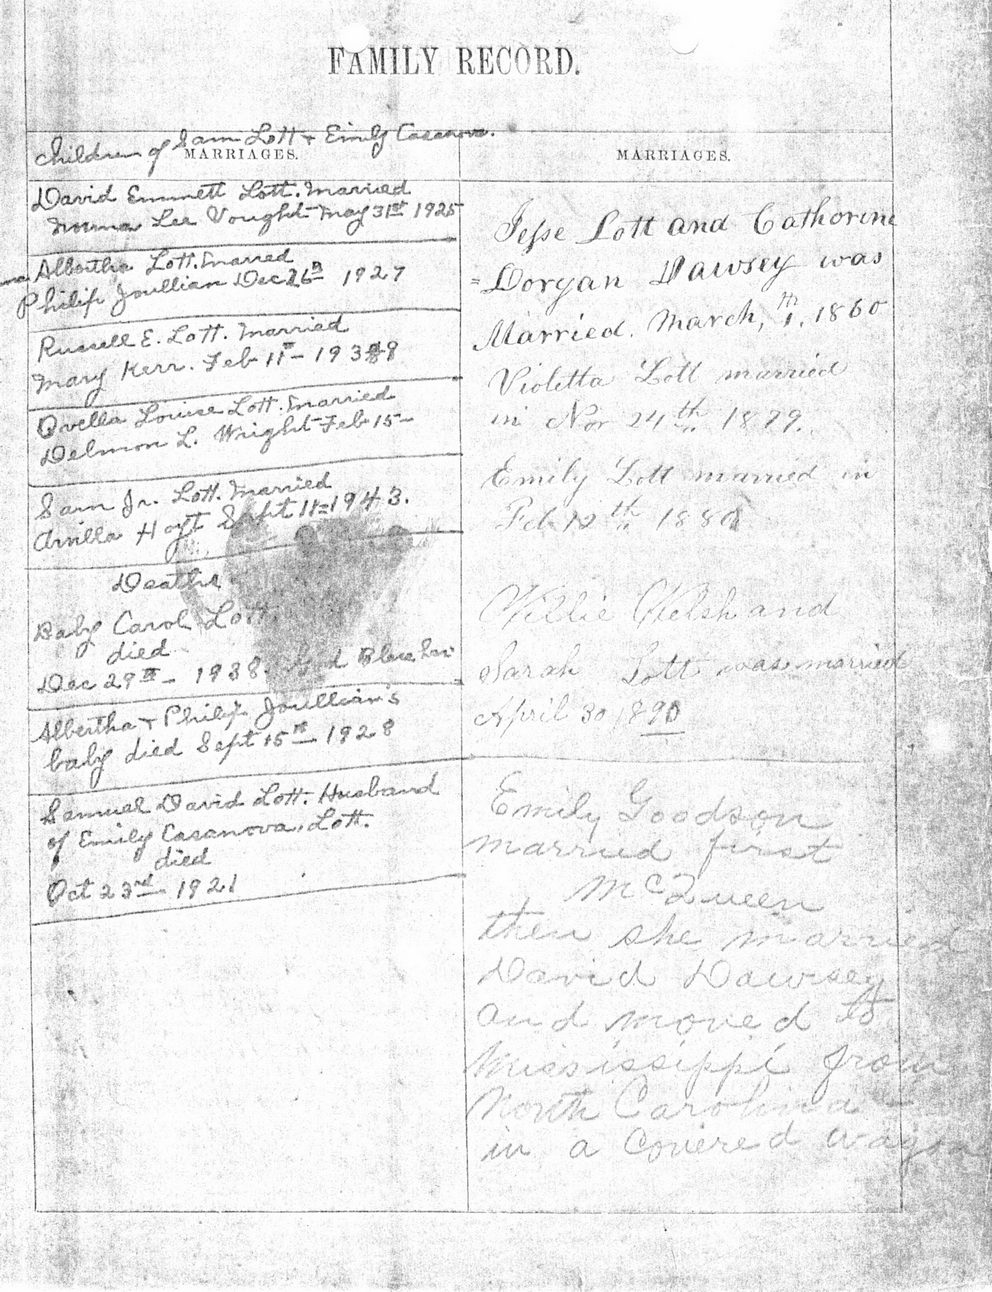 FAMILY RECORD.
Children of Sam Lott + Emily Casanova.
MARRIAGES.
David Emmett Lott. Married
Norma Lee Vought - May 31st 1925
Albertha Lott. Married
Philip Joullian Dec 26 1927
Russell E. Lott. Married
Mary Kerr. Feb 11th - 193
Ovella Louise Lott. Married
Delmon L. Wright - Feb 15 -
Sam Jr. Lott. Married
Arvilla Hoyt Sept 11 - 1943.
Deaths
Baby Carol Lott.
died
Dec 29th - 1938. God Bless
Albertha + Philip Joullian's
baby died Sept 15th - 1928
Samuel David Lott. Husband
of Emily Casanova. Lott.
died
Oct 23rd - 1921
MARRIAGES.
Jesse Lott and Cathorine
= Doryan Dawsey was
Married. March, 1860
Violetta Lott married
in Nov 24th. 1879.
Emily Lott married in
Feb 12th. 188
Willie Welsh and
Sarah Lott was married
April 30 1890
Emily Goodson
married first
McQueen
then she married
David Dawsey
and moved to
Mississippi from
North Carolina -
in a covered wagon